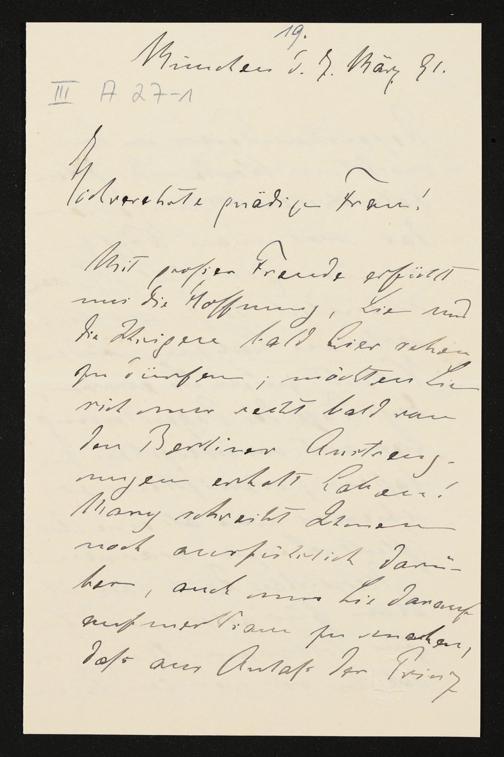 19.
München d. 7. März 91.
III A 27-1
Hochverehrte gnädige Frau!
Mit großer Freude erfüllt
uns die Hoffnung, Sie und
die Ihrigen bald hier sehen
zu dürfen; möchten Sie
sich nur recht bald von
den Berliner Anstreng-
ungen erholt haben!
Mary schreibt Ihnen
noch ausführlich darü-
ber, auch um Sie darauf
aufmerksam zu machen,
daß aus Anlaß der Prinz